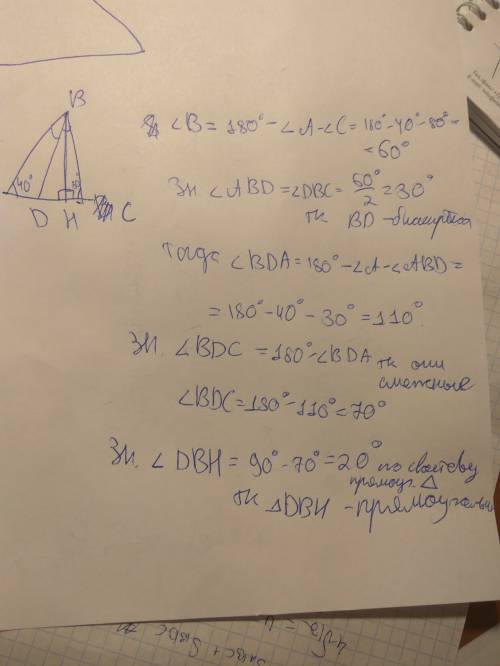 B
∠B = 180° - ∠A - ∠C = 180° - 40° - 80° =
= 60°
40°
80°
D H C
Зн ∠ABD = ∠DBC = 60°/2 = 30°
тк BD - биссектриса
Тогда ∠BDA = 180° - ∠A - ∠ABD =
= 180° - 40° - 30° = 110°.
Зн. ∠BDC = 180° - ∠BDA тк они
смежные
∠BDC = 180° - 110° = 70°
Зн. ∠DBH = 90° - 70° = 20° по свойству
прямоуг. Δ
тк ΔDBH - прямоугольн